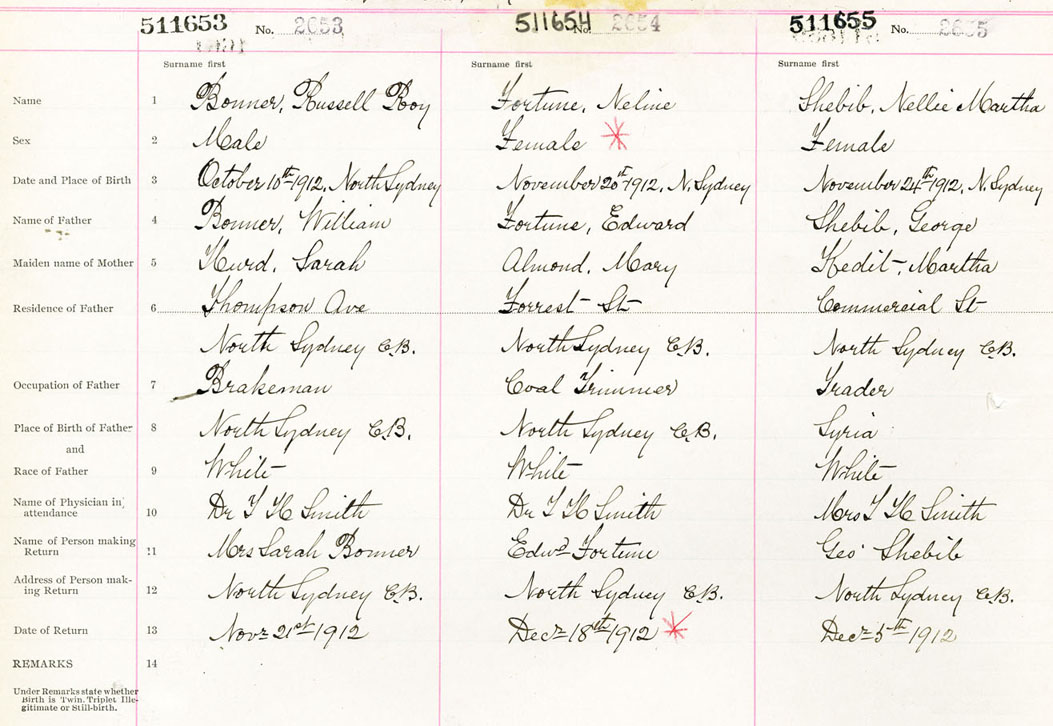 511653 No. 2653 511654 No. 2654 511655 No. 2655
Surname first Surname first Surname first
Name 1 Bonner, Russell Roy Fortune, Neline Shebib, Nellie Martha
Sex 2 Male Female Female
Date and Place of Birth 3 October 10th 1912, North Sydney November 20th 1912, N. Sydney November 24th 1912, N. Sydney
Name of Father 4 Bonner, William Fortune, Edward Shebib, George
Maiden name of Mother 5 Hurd, Sarah Almond, Mary Kedit, Martha
Residence of Father 6 Thompson Ave Forrest St Commercial St
North Sydney C.B. North Sydney C.B. North Sydney C.B.
Occupation of Father 7 Brakeman Coal Trimmer Trader
Place of Birth of Father 8 North Sydney C.B. North Sydney C.B. Syria
and
Race of Father 9 White White White
Name of Physician in
attendance 10 Dr T H Smith Dr T H Smith Mrs T H Smith
Name of Person making
Return 11 Mrs Sarah Bonner Edwd Fortune Geo Shebib
Address of Person mak-
ing Return 12 North Sydney C.B. North Sydney C.B. North Sydney C.B.
Date of Return 13 Novr 21st 1912 Decr 18th 1912 Decr 5th 1912
REMARKS 14
Under Remarks state whether
Birth is Twin, Triplet Ille-
gitimate or Still-birth.